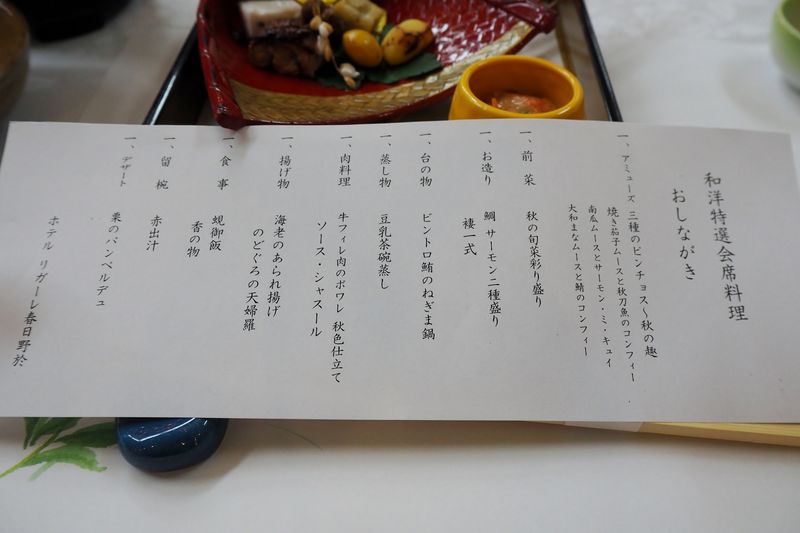 和洋特選会席料理
おしながき
一、アミューズ 三種のピンチョス〜秋の趣
焼き茄子ムースと秋刀魚のコンフィー
南瓜ムースとサーモン・ミ・キュイ
大和まなムースと鯖のコンフィー
一、前菜 秋の旬菜彩り盛り
一、お造り 鯛 サーモン二種盛り
褄一式
一、台の物 ビントロ鮪のねぎま鍋
一、蒸し物 豆乳茶碗蒸し
一、肉料理 牛フィレ肉のポワレ 秋色仕立て
ソース・シャスール
一、揚げ物 海老のあられ揚げ
のどぐろの天婦羅
一、食事 蜆御飯
香の物
一、留椀 赤出汁
一、デザート 栗のバンベルデュ
ホテル リガーレ春日野於